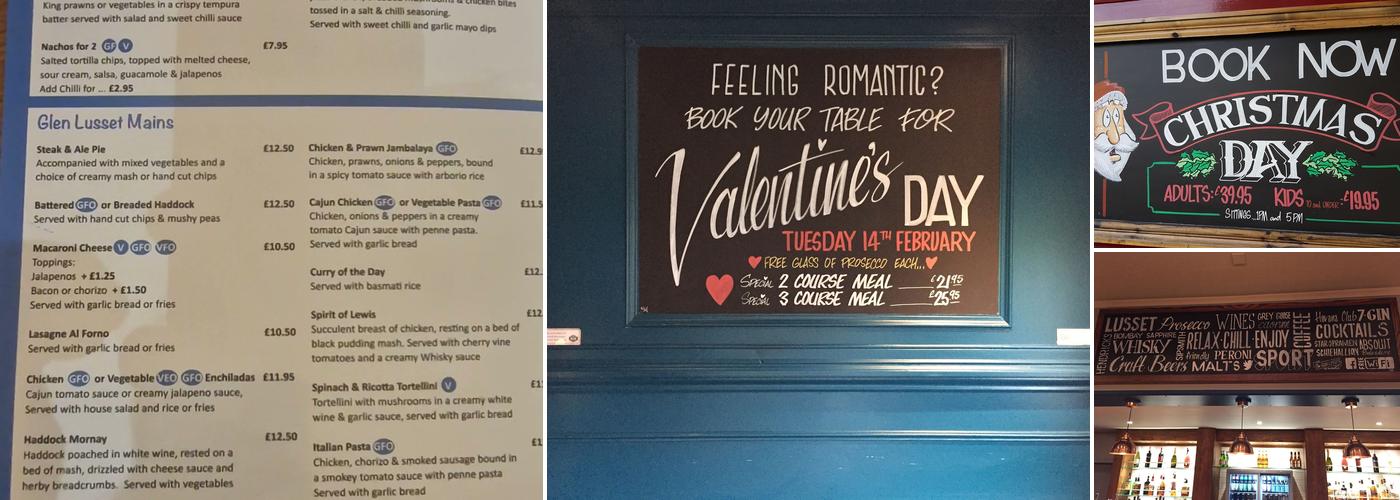 King prawns or vegetables in a crispy tempura
batter served with salad and sweet chilli sauce
Nachos for 2 GF V £7.95
Salted tortilla chips, topped with melted cheese,
sour cream, salsa, guacamole & jalapenos
Add Chilli for ... £2.95
& chicken bites
tossed in a salt & chilli seasoning.
Served with sweet chilli and garlic mayo dips
Glen Lusset Mains
Steak & Ale Pie £12.50
Accompanied with mixed vegetables and a
choice of creamy mash or hand cut chips
Battered GFO or Breaded Haddock £12.50
Served with hand cut chips & mushy peas
Macaroni Cheese V GFO VFO £10.50
Toppings:
Jalapenos + £1.25
Bacon or chorizo + £1.50
Served with garlic bread or fries
Lasagne Al Forno £10.50
Served with garlic bread or fries
Chicken GFO or Vegetable VEO GFO Enchiladas £11.95
Cajun tomato sauce or creamy jalapeno sauce,
Served with house salad and rice or fries
Haddock Mornay £12.50
Haddock poached in white wine, rested on a
bed of mash, drizzled with cheese sauce and
herby breadcrumbs. Served with vegetables
Chicken & Prawn Jambalaya GFO £12.9
Chicken, prawns, onions & peppers, bound
in a spicy tomato sauce with arborio rice
Cajun Chicken GFO or Vegetable Pasta GFO £11.5
Chicken, onions & peppers in a creamy
tomato Cajun sauce with penne pasta.
Served with garlic bread
Curry of the Day £12.
Served with basmati rice
Spirit of Lewis £12
Succulent breast of chicken, resting on a bed of
black pudding mash. Served with cherry vine
tomatoes and a creamy Whisky sauce
Spinach & Ricotta Tortellini V £1
Tortellini with mushrooms in a creamy white
wine & garlic sauce, served with garlic bread
Italian Pasta GFO £1
Chicken, chorizo & smoked sausage bound in
a smokey tomato sauce with penne pasta
Served with garlic bread
FEELING ROMANTIC?
BOOK YOUR TABLE FOR
Valentine's
DAY
TUESDAY 14TH FEBRUARY
FREE GLASS OF PROSECCO EACH...
SPECIAL 2 COURSE MEAL £21.95
SPECIAL 3 COURSE MEAL £25.95
BOOK NOW
CHRISTMAS
DAY
ADULTS: £39.95 KIDS 10 and UNDER: £19.95
SITTINGS...1PM and 5PM
LUSSET Prosecco WINES GREY GOOSE COFFEE Havana Club 7 GIN
BOMBAY SAPPHIRE COCKTAILS
HENDRICK'S WHISKY RELAX·CHILL·ENJOY STAROPRAMEN ABSOLUT
Craft Beers friendly PERONI SPORT SCHIEHALLION
MALTS WiFi